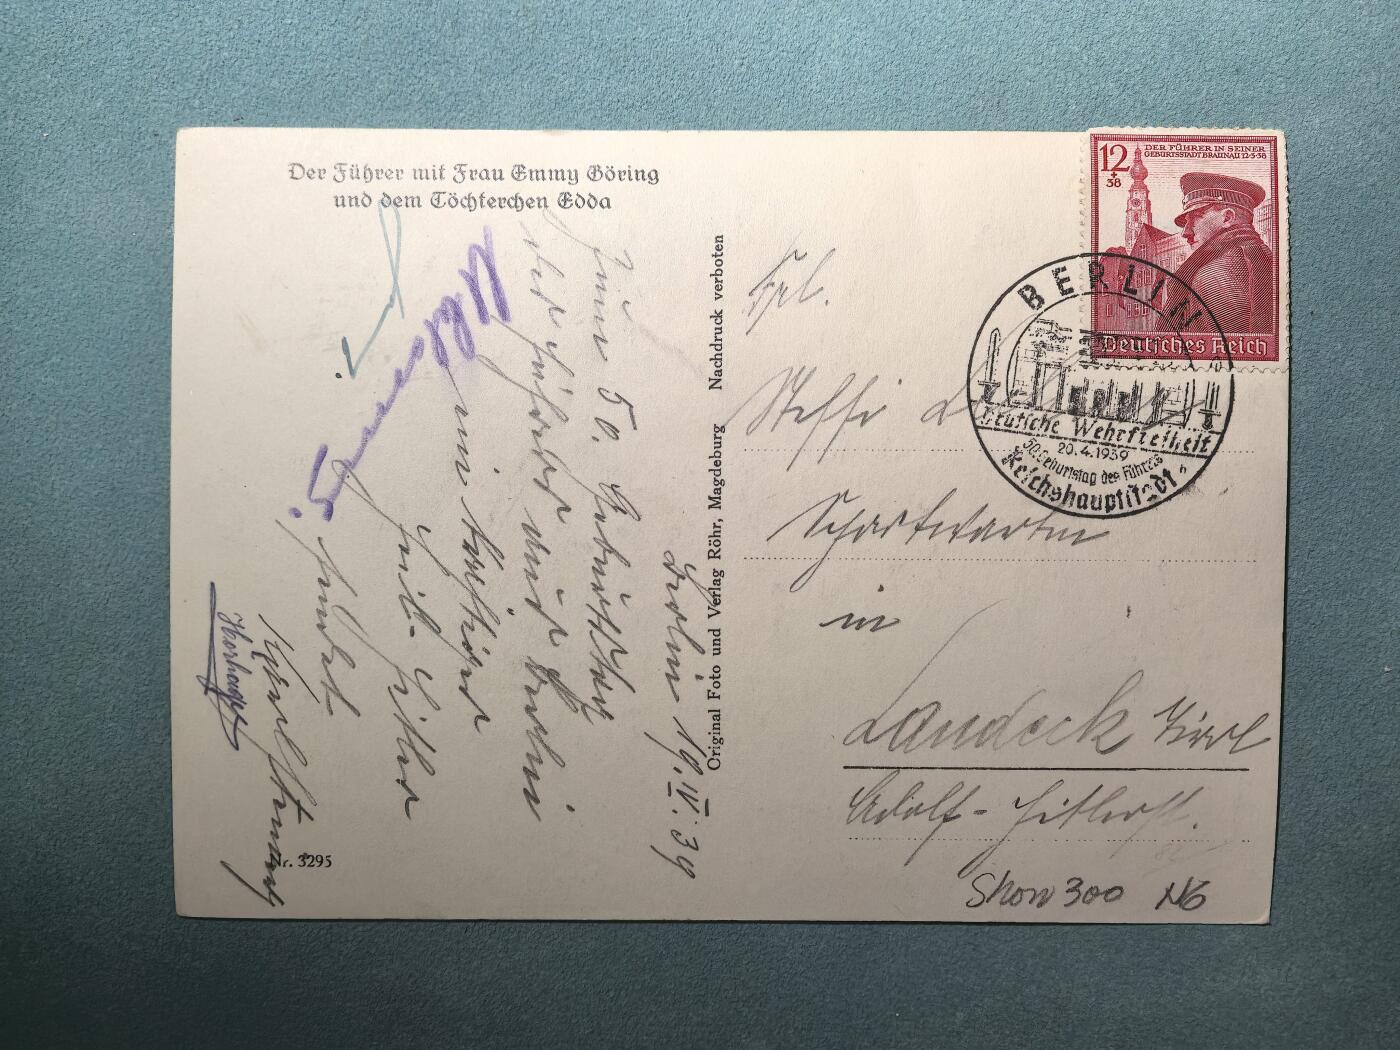 Der Führer mit Frau Emmy Göring
und dem Töchterchen Edda
Berlin 19.IV.39
Zum 50. Geburtstag
Führers aus Berlin
ein kräftiges
Heil Hitler
sendet
Nr. 3295
Original Foto und Verlag Röhr, Magdeburg Nachdruck verboten
12
+
38
DER FÜHRER IN SEINER
GEBURTSSTADT BRAUNAU 12·3·38
Deutsches Reich
BERLIN
Deutsche Wehrfreiheit
20.4.1939
50. Geburtstag des Führers
Reichshauptstadt
Frl.
Steffi
in
Landeck Tirol
Adolf-Hitlerst.
Show 300 NG